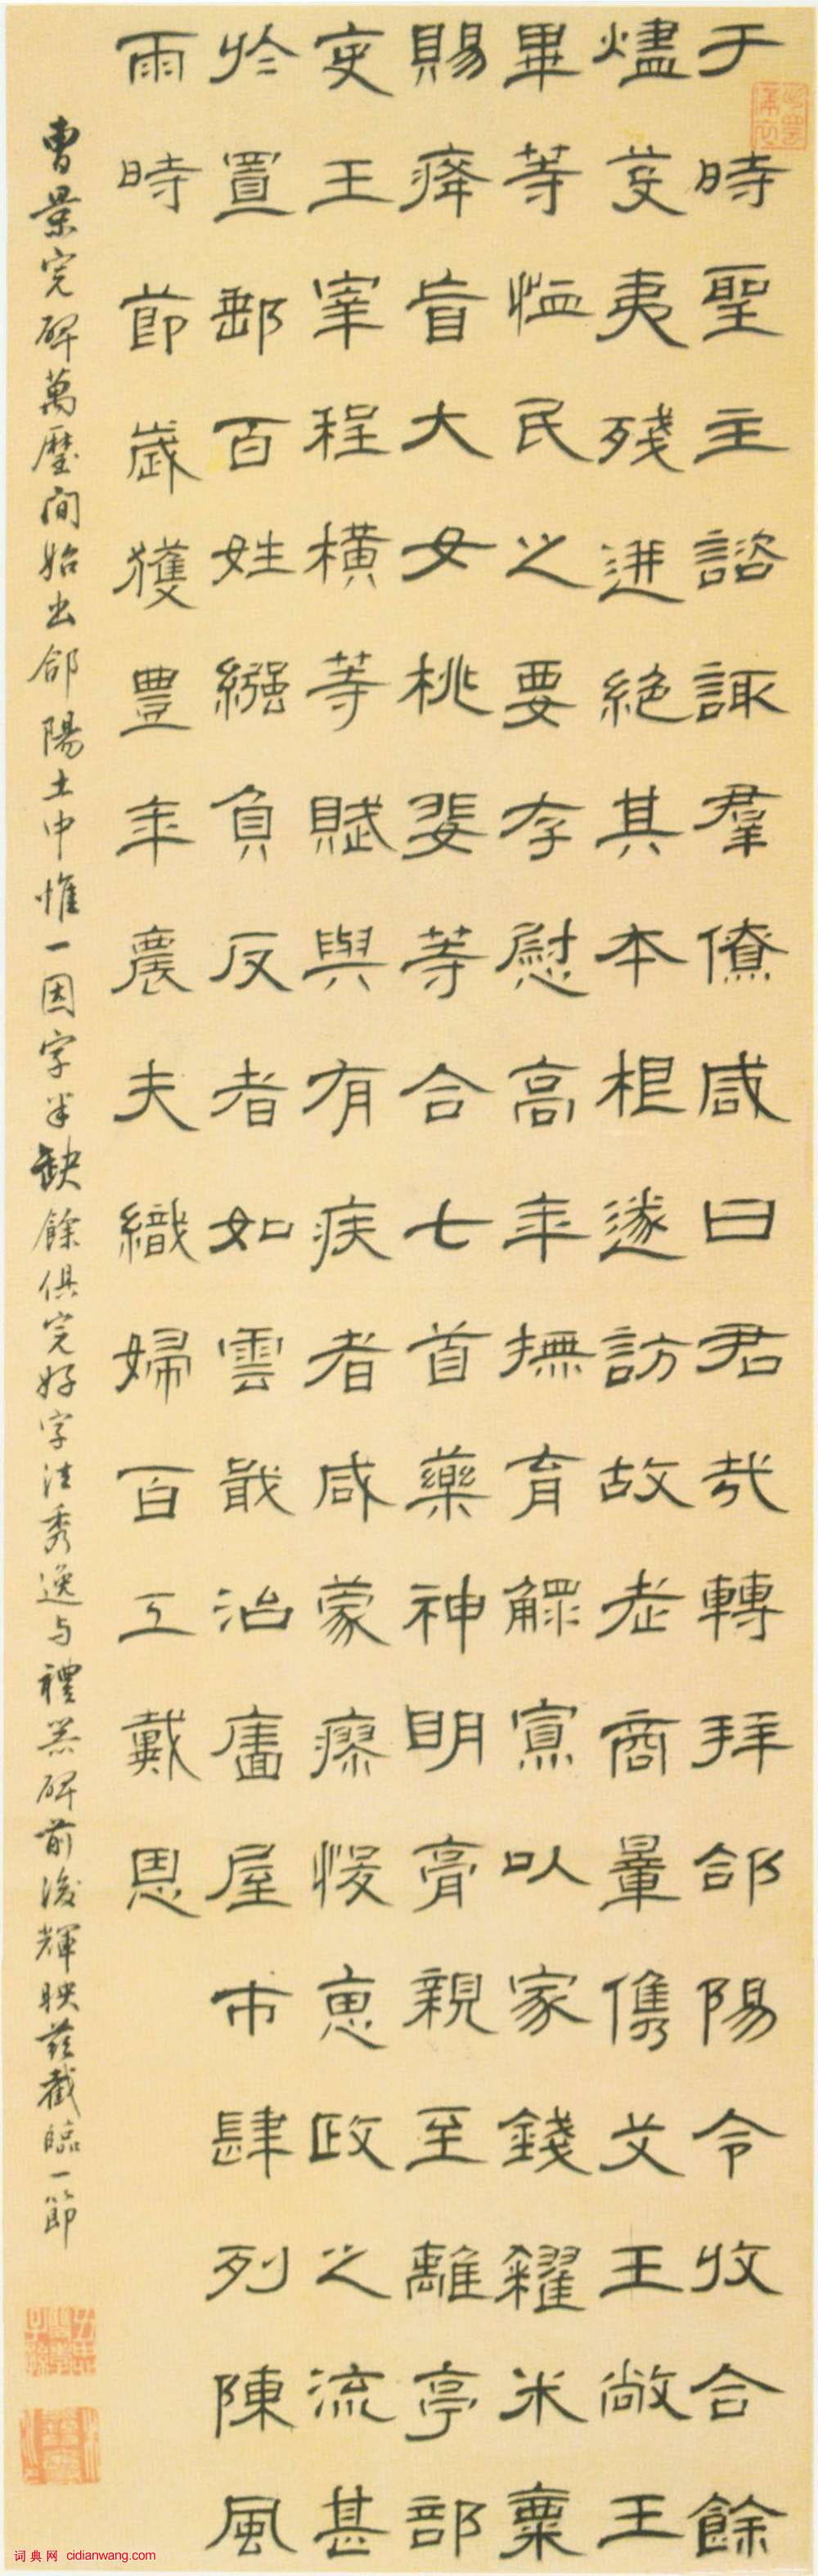 于時聖主諮諏羣僚咸曰君哉轉拜郃陽令收合餘
燼芟夷殘迸絕其本根遂訪故老商量儁艾王敞王
畢等恤民之要存慰高年撫育鰥寡以家錢糴米粟
賜癃盲大女桃婓等合七首藥神明膏親至離亭部
吏王宰程橫等賦與有疾者咸蒙瘳悛惠政之流甚
於置郵百姓繦負反者如雲戢治廧屋市肆列陳風
雨時節歲獲豐年農夫織婦百工戴恩
曹景完碑萬曆間始出郃陽土中惟一因字半缺餘俱完好字法秀逸与禮器碑前後輝映茲截臨一節
词典网 cidianwang.com